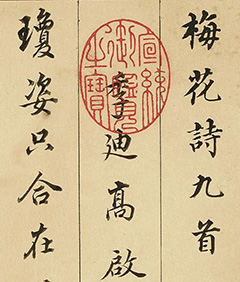 梅花詩九首
宣統御覽之寶
季迪高啟
瓊姿只合在